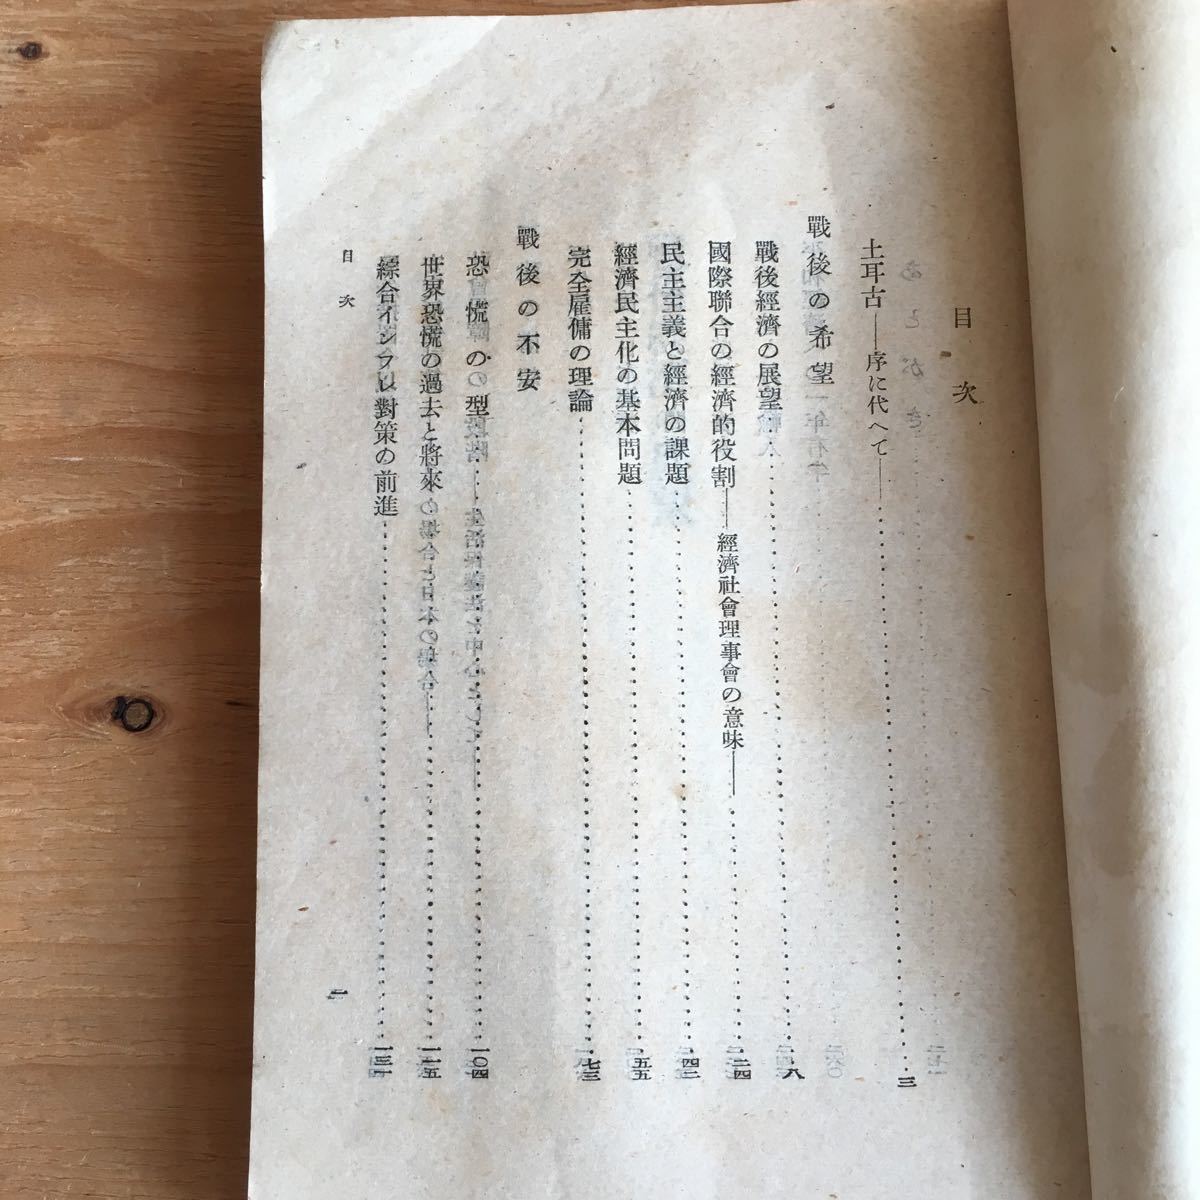 目次
土耳古——序に代へて——……三
戰後の希望
戰後經濟の展望……八
國際聯合の經濟的役割——經濟社會理事會の意味——……二四
民主主義と經濟の課題……四二
經濟民主化の基本問題……五五
完全雇傭の理論……七三
戰後の不安
恐慌の型……一〇四
世界恐慌の過去と將來……一一五
綜合インフレ對策の前進……
目次